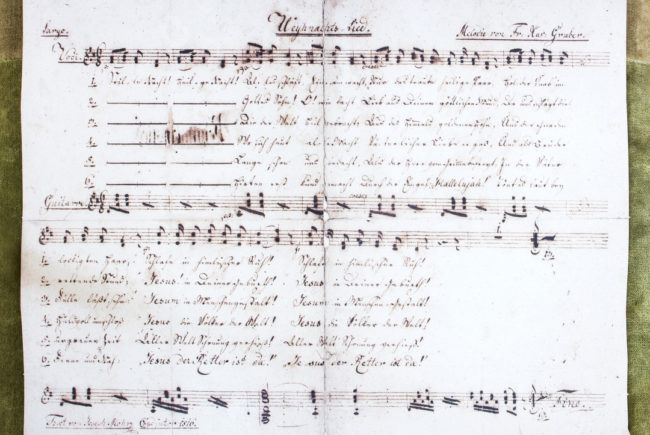 Largo. Weyhnachts-Lied. Melodie von Fr. Xav. Gruber.
Voci.
1. Stille Nacht! Heilige Nacht! Alles schläft Einsam wacht, Nur das traute heilige Paar. Holder Knab' im
2. Gottes Sohn! O! wie lacht Lieb' aus Deinem göttlichen Mund, Da schlägt uns die
3. Die der Welt Heil gebracht, Aus des Himmels goldenen Höhn, Uns der Gnaden
4. Wo sich heut alle Macht Väterlicher Liebe ergoß, Und als Bruder
5. Lange schon uns bedacht, Als der Herr vom Grimme befreyt In der Väter
6. Hirten erst kund gemacht Durch der Engel Hallelujah! Tönt es laut bey
Guitarre.
1. lockigten Haar; Schlafe in himmlischer Ruh! Schlafe in himmlischer Ruh!
2. rettende Stund; Jesus! in Deiner Geburt! Jesus in Deiner Geburt!
3. Fülle läßt sehn, Jesum in Menschengestalt! Jesum in Menschengestalt!
4. huldvoll umschloß Jesus die Völker der Welt! Jesus die Völker der Welt!
5. urgrauer Zeit Aller Welt Schonung verhieß! Aller Welt Schonung verhieß!
6. Ferne und Nah: Jesus der Retter ist da!" Jesus der Retter ist da!"
Fine.
Text von Joseph Mohr Coadjutor 1816.